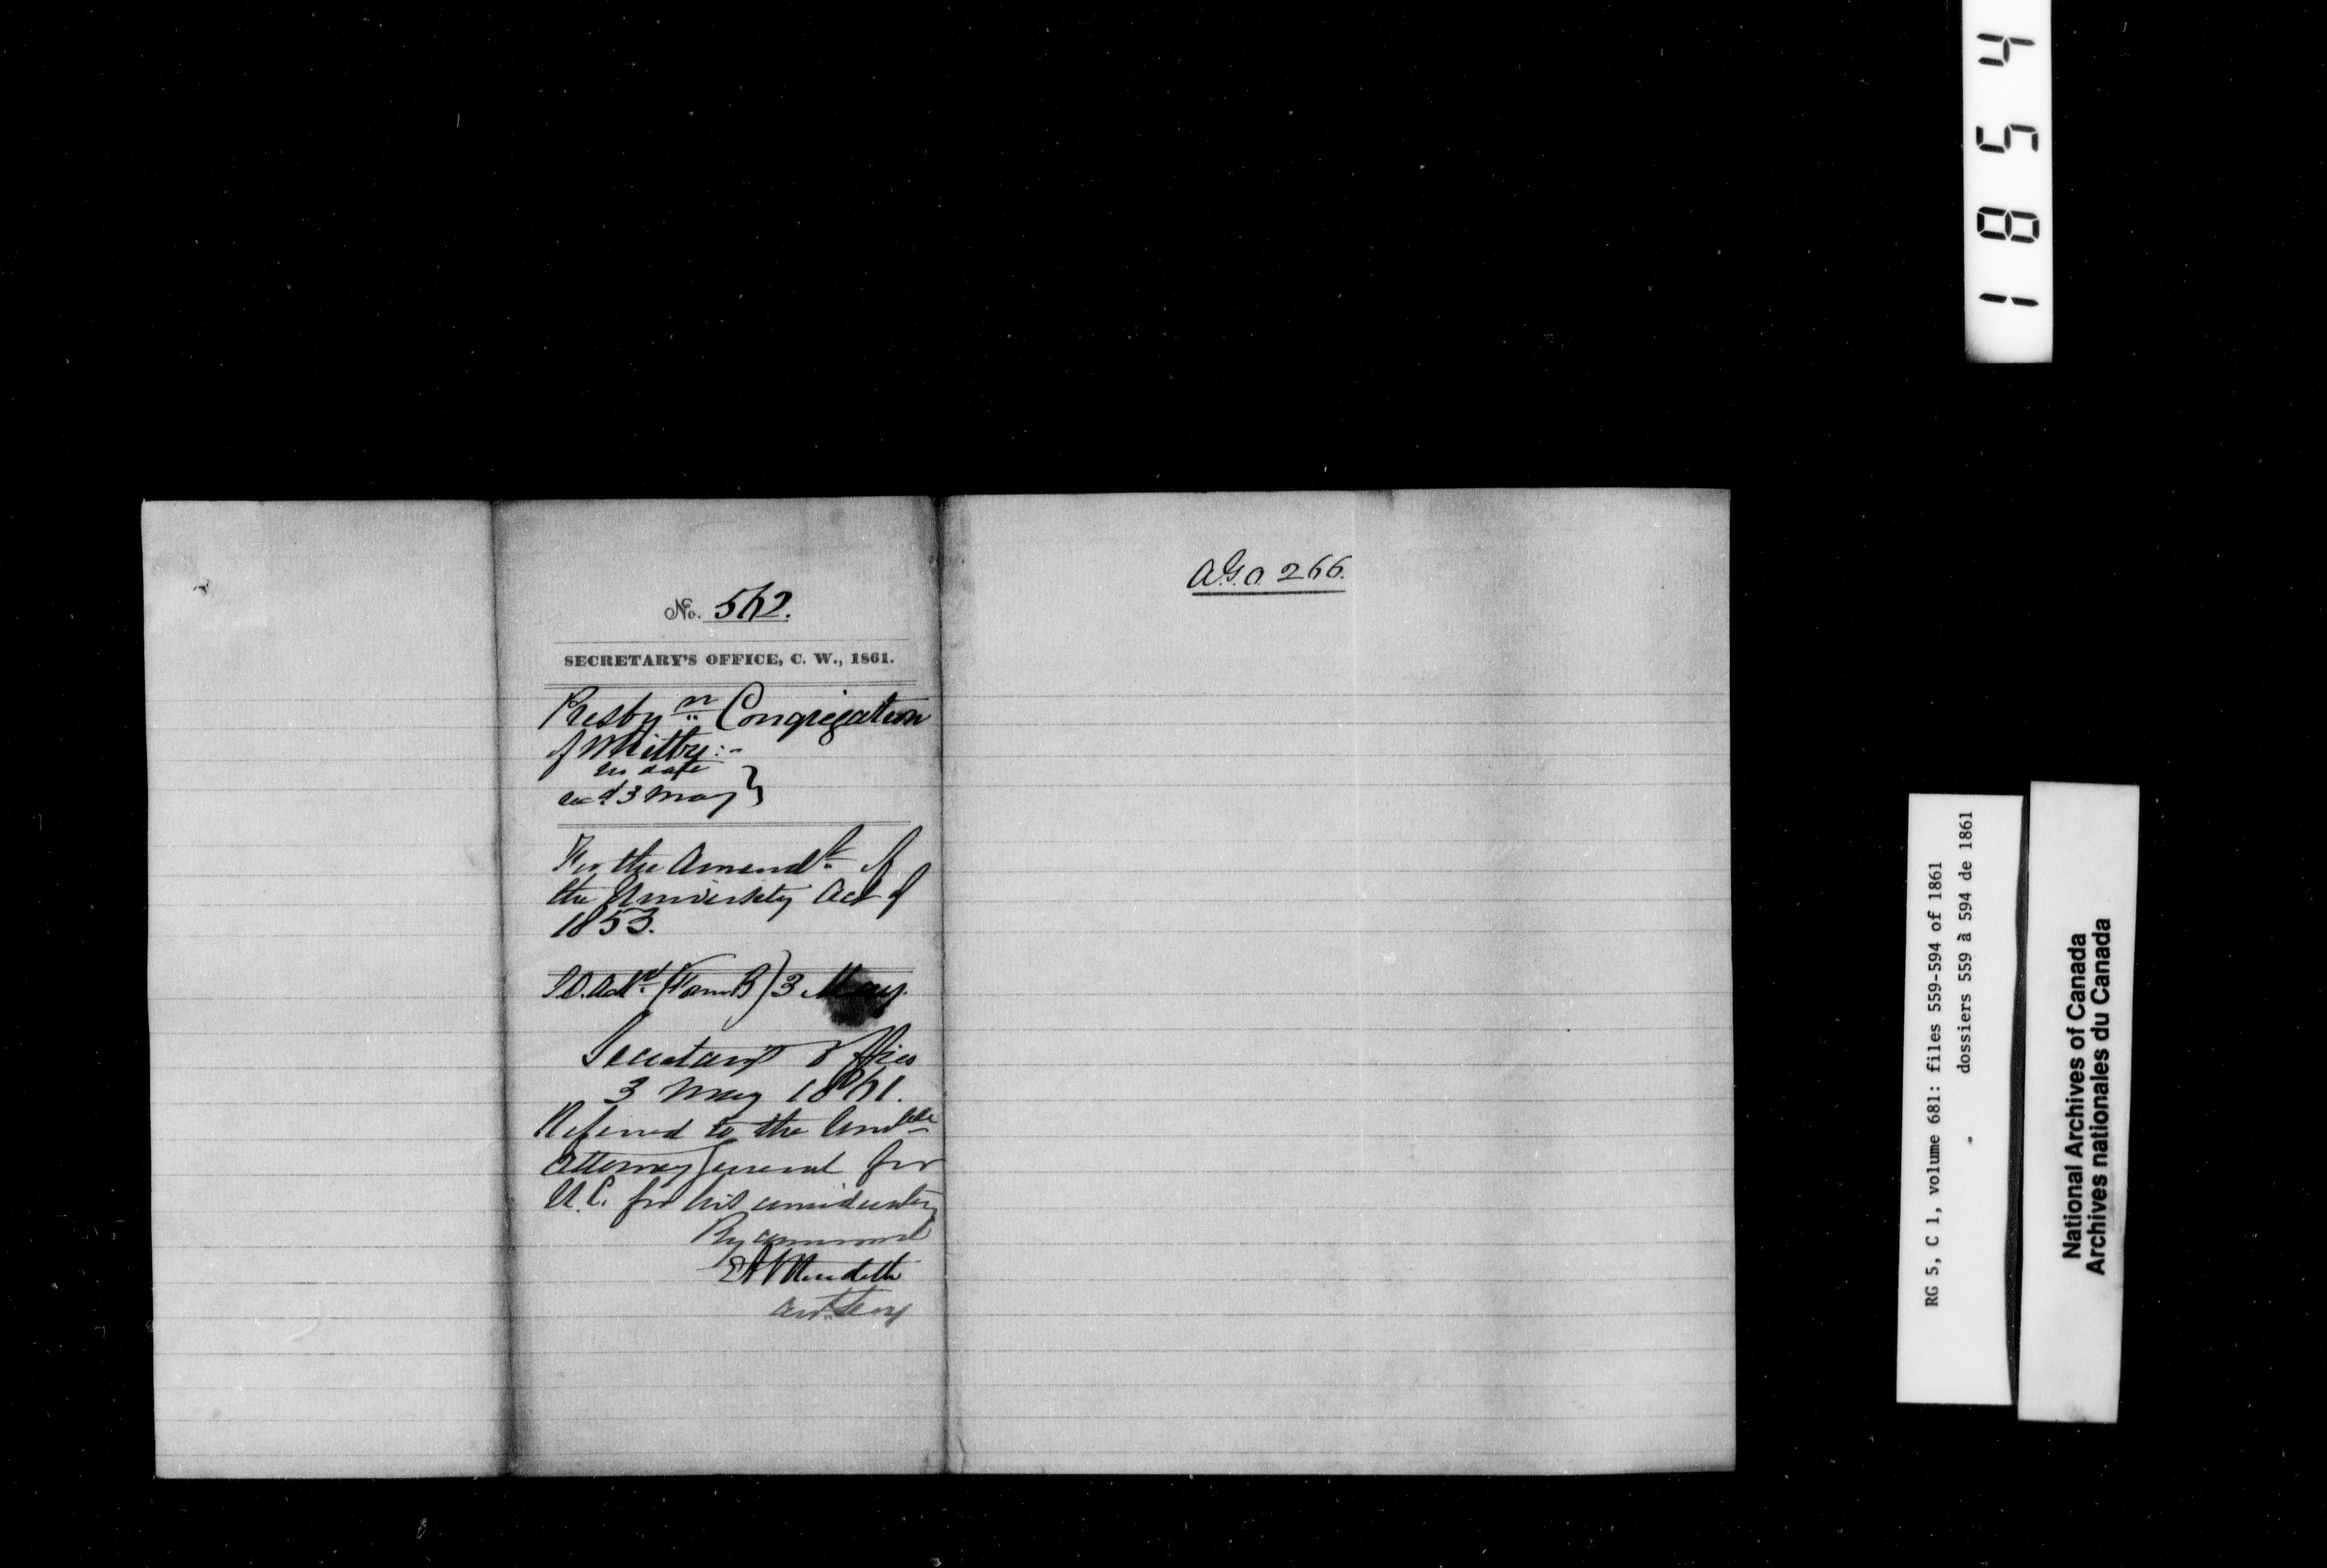 No. 562.
SECRETARY'S OFFICE, C. W., 1861.
Presbyn Congregation
of Whitby:-
no date
recd 3 May }
For the Amendt of
the University Act of
1853.
Ackd (Form B) 3 May.
Secretary's Office
3 May 1861.
Referred to the Honble
Attorney General for
U.C. for his consideration
By command
E A Meredith
Asst. Secy
A.G.O. 266.
1854
RG 5, C 1, volume 681: files 559-594 of 1861
dossiers 559 à 594 de 1861
National Archives of Canada
Archives nationales du Canada